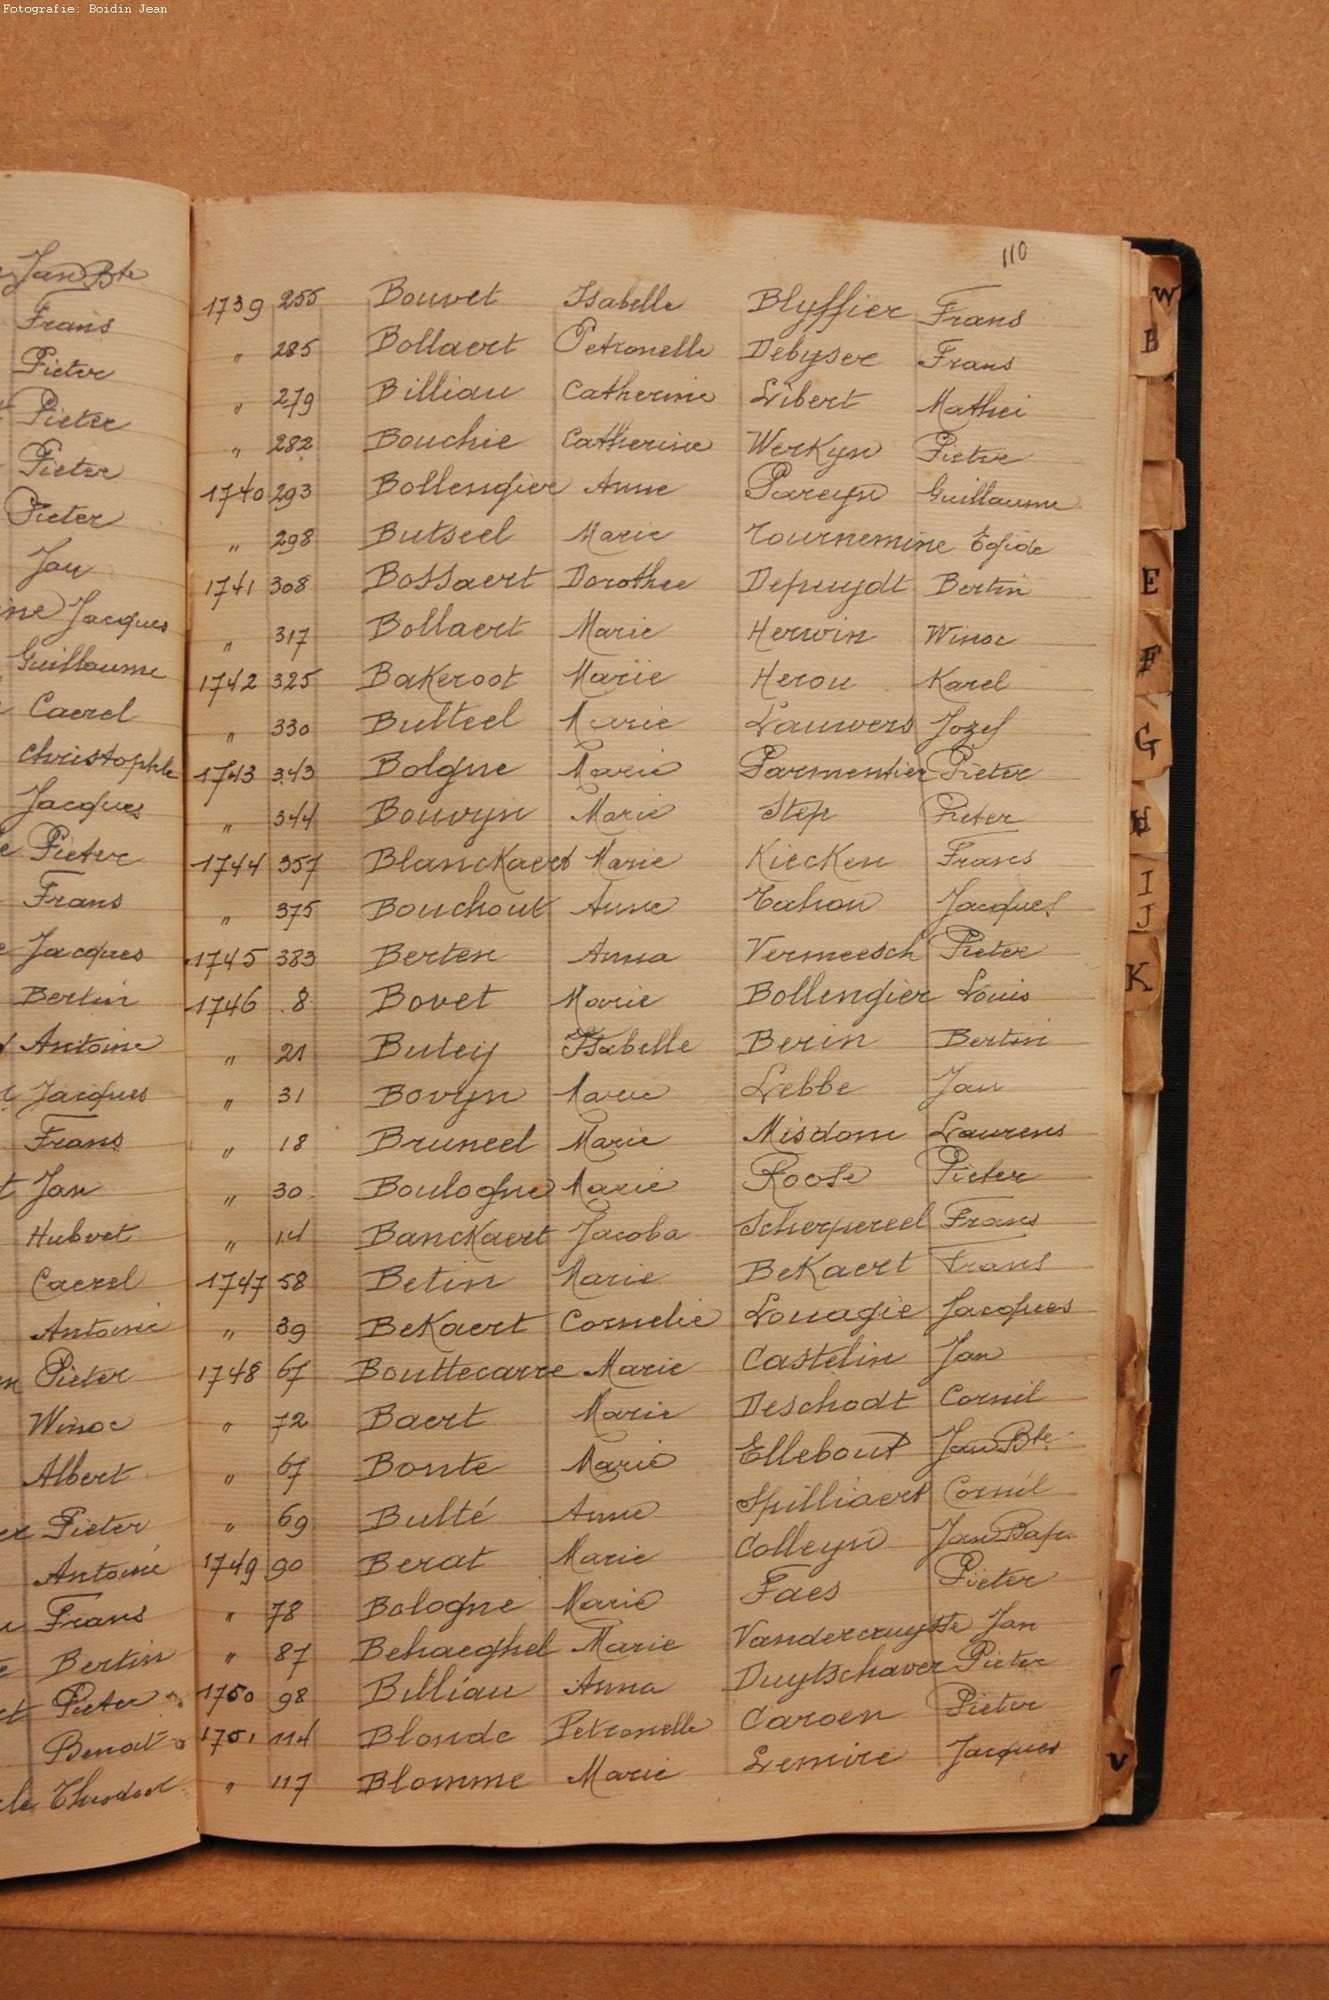 Fotografie: Boidin Jean
Jan Bte
Frans
Pieter
Pieter
Pieter
Pieter
Jan
Jacques
Guillaume
Caerel
Christophle
Jacques
Pieter
Frans
Jacques
Bertin
Antoine
Jacques
Frans
Jan
Hubret
Caerel
Antoine
Pieter
Winoc
Albert
Pieter
Antoine
Frans
Bertin
Pieter
Benoit
110
1739 255 Bouvet Isabelle Blyffier Frans
" 285 Bollaert Petronelle Debyser Frans
" 279 Billiau Catherine Libert Mathei
" 282 Bouchie Catherine Werkyn Pieter
1740 293 Bollengier Anne Pareyn Guillaume
" 298 Butseel Marie Tournemine Egide
1741 308 Bossaert Dorothee Depuydt Bertin
" 317 Bollaert Marie Herwin Winoc
1742 325 Bakeroot Marie Herou Karel
" 330 Bulteel Marie Lauwers Jozef
1743 343 Bolgne Marie Parmentier Pieter
" 344 Bouvyn Marie Step Pieter
1744 357 Blanckaert Marie Kiecken Frans
" 375 Bouchout Anne Tahon Jacques
1745 383 Berten Anna Vermeesch Pieter
1746 8 Bovet Marie Bollengier Louis
" 21 Butey Isabelle Berin Bertin
" 31 Bovyn Marie Lebbe Jan
" 18 Bruneel Marie Misdom Laurens
" 30 Boulogne Marie Roose Pieter
" 14 Banckaert Jacoba Scherpereel Frans
1747 58 Betin Marie Bekaert Frans
" 39 Bekaert Cornelie Louagie Jacques
1748 67 Bouttecarre Marie Castelin Jan
" 72 Baert Marie Deschodt Cornil
" 67 Bonte Marie Ellebout Jan Bte
" 69 Bulté Anne Spilliaert Cornil
1749 90 Berat Marie Colleyn Jan Bap.
" 78 Bologne Marie Faes Pieter
" 87 Behaeghel Marie Vandercruysse Jan
1750 98 Billiau Anna Duytschaver Pieter
1751 114 Blonde Petronelle Caroen Pieter
" 117 Blomme Marie Lemire Jacques
W
B
E
F
G
H
I
J
K
V